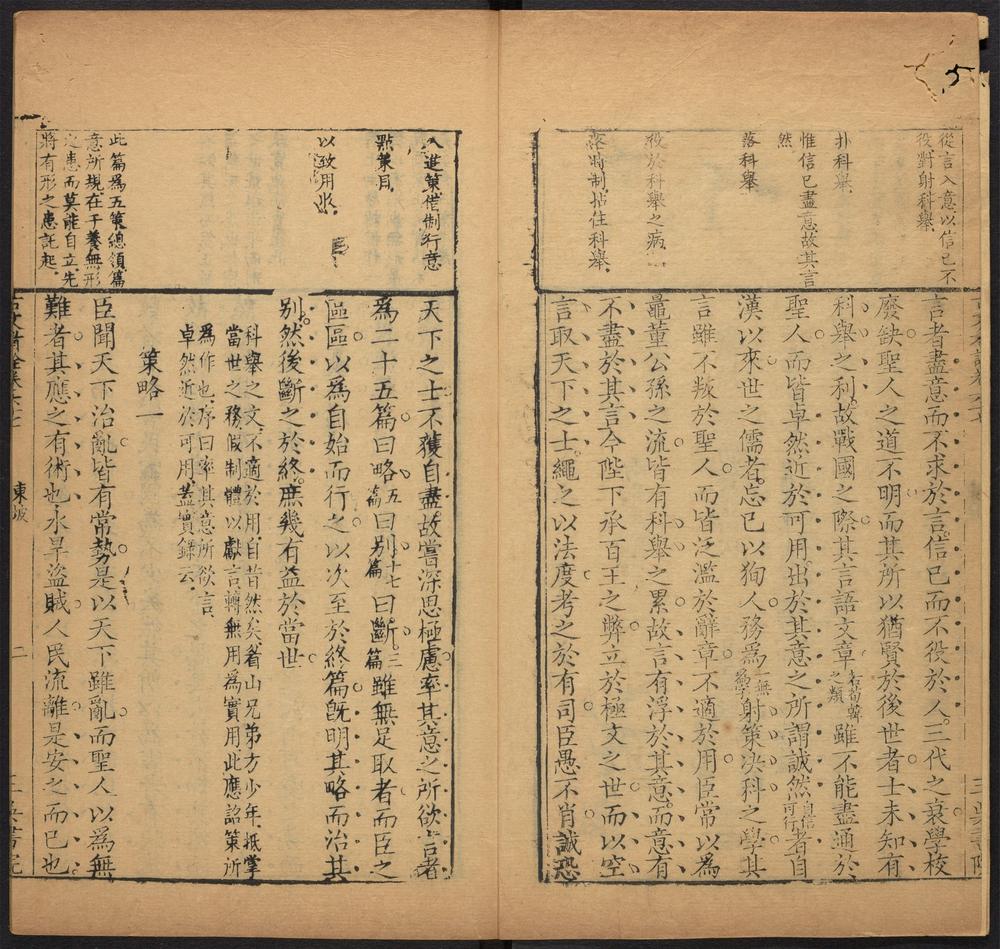 從言入意以信已不
役對射科舉
扑科舉
惟信已盡意故其言
然
落科舉
於科舉之病
將制拈住科舉
言者盡意而不求於言信已而不役於人三代之衰學校
廢缺聖人之道不明而其所以猶賢於後世者士未知有
科舉之利故戰國之際其言語文章右荀韓之類雖不能盡通於
聖人而皆卓然近於可用出於其意之所謂誠然自信可行者自
漢以來世之儒者忘已以狥人務為一無為學射策決科之學其
言雖不叛於聖人而皆泛濫於辭章不適於用臣常以為
鼂董公孫之流皆有科舉之累故言有浮於其意而意有
不盡於其言今陛下承百王之弊立於極文之世而以空
言取天下之士繩之以法度考之於有司臣愚不肖誠恐
入進策借制行意
點策目
以致用收
此篇為五策總領篇
意所規在于養無形
之患而莫能自立先
將有形之患託起
天下之士不獲自盡故嘗深思極慮率其意之所欲言者
為二十五篇曰略五篇曰別十七篇曰斷三篇雖無足取者而臣之
區區以為自始而行之以次至於終篇既明其略而治其
別然後斷之於終庶幾有益於當世
科舉之文不適於用自昔然矣眉山兄弟方少年抵掌
當世之務假制體以獻言轉無用為實用此應詔策所
為作也序曰率其意所欲言
卓然近於可用蓋實錄云
策略一
臣聞天下治亂皆有常勢是以天下雖亂而聖人以為無
難者其應之有術也水旱盜賊人民流離是安之而已也
東坡
二